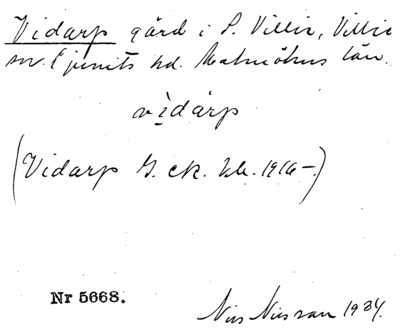 Vidarp gård i S. Villie, Villie
sn. Ljunits hd. Malmöhus län.
vìdàrp
(Vidarp G. ek. bl. 1916-.)
Nr 5668.
Nils Nilsson 1924.